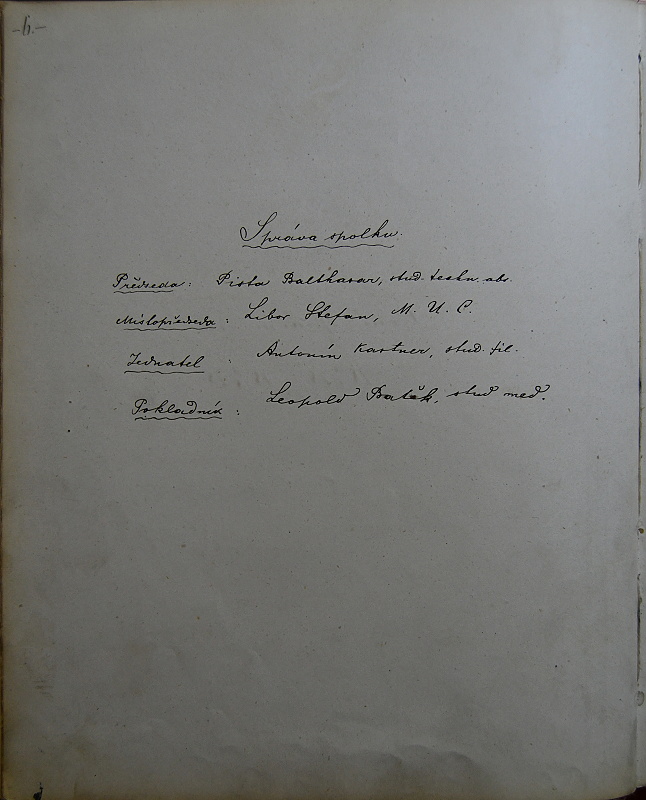 -6.-
Správa spolku.
Předseda: Pista Balthasar, stud. techn. abs.
Místopředseda: Libor Stefan, M. U. C.
Jednatel : Antonín Kastner, stud. fil.
Pokladník : Leopold Baták, stud med.